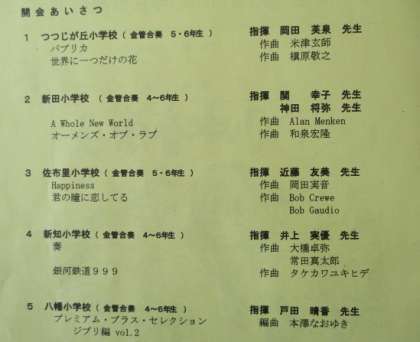 開会あいさつ
1 つつじが丘小学校（金管合奏 5・6年生） 指揮 岡田 英泉 先生
パプリカ 作曲 米津玄師
世界に一つだけの花 作曲 槇原敬之
2 新田小学校（金管合奏 4〜6年生） 指揮 関 幸子 先生
神田 将弥 先生
A Whole New World 作曲 Alan Menken
オーメンズ・オブ・ラブ 作曲 和泉宏隆
3 佐布里小学校（金管合奏 5・6年生） 指揮 近藤 友美 先生
Happiness 作曲 岡田実音
君の瞳に恋してる 作曲 Bob Crewe
Bob Gaudio
4 新知小学校（金管合奏 4〜6年生） 指揮 井上 実優 先生
奏 作曲 大橋卓弥
常田真太郎
銀河鉄道９９９ 作曲 タケカワユキヒデ
5 八幡小学校（金管合奏 4〜6年生） 指揮 戸田 晴香 先生
プレミアム・ブラス・セレクション 編曲 本澤なおゆき
ジブリ編 vol.2